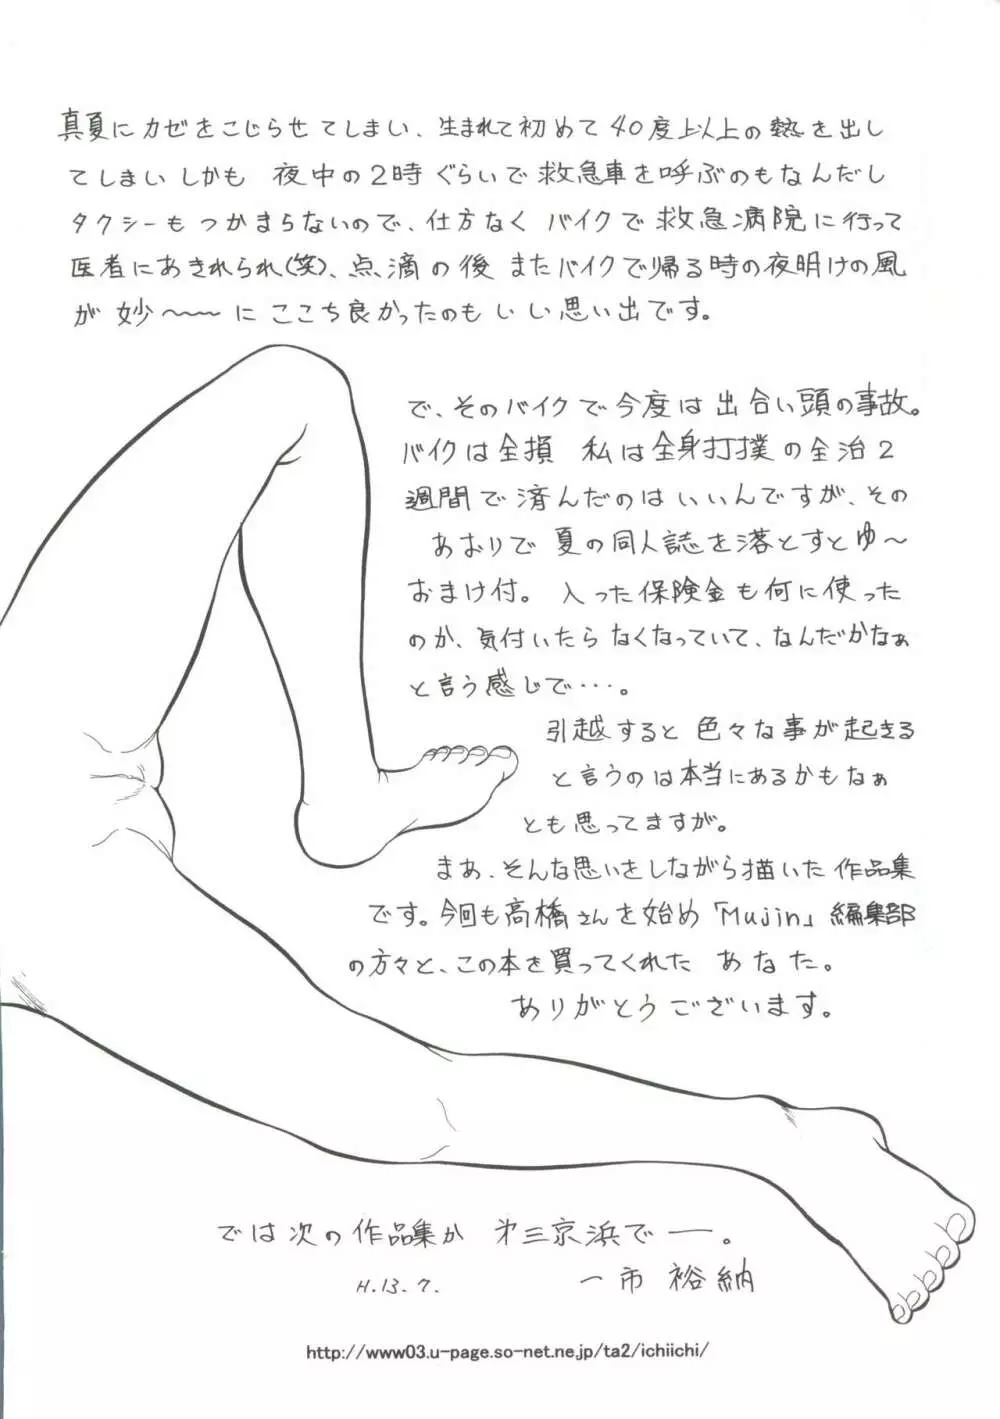 真夏にカゼをこじらせてしまい、生まれて初めて40度上以上の熱を出し
てしまいしかも 夜中の2時ぐらいで救急車を呼ぶのもなんだし
タクシーもつかまらないので、仕方なく バイクで救急病院に行って
医者にあきれられ(笑)、点滴の後 またバイクで帰る時の夜明けの風
が 妙〜〜〜に ここち良かったのも いい思い出です。
で、そのバイクで今度は出合い頭の事故。
バイクは全損 私は全身打撲の全治2
週間で済んだのはいいんですが、その
あおりで 夏の同人誌を落とすとゆ〜
おまけ付。 入った保険金も何に使った
のか、気付いたらなくなっていて、なんだかなぁ
と言う感じで‥‥。
引越すると色々な事が起きる
と言うのは本当にあるかもなぁ
とも思ってますが。
まあ、そんな思いをしながら描いた作品集
です。今回も高橋さんを始め「Mujin」編集部
の方々と、この本を買ってくれた あなた。
ありがとうございます。
では次の作品集か 第三京浜でー。
H.13.7.
一市 裕納
http://www03.u-page.so-net.ne.jp/ta2/ichiichi/